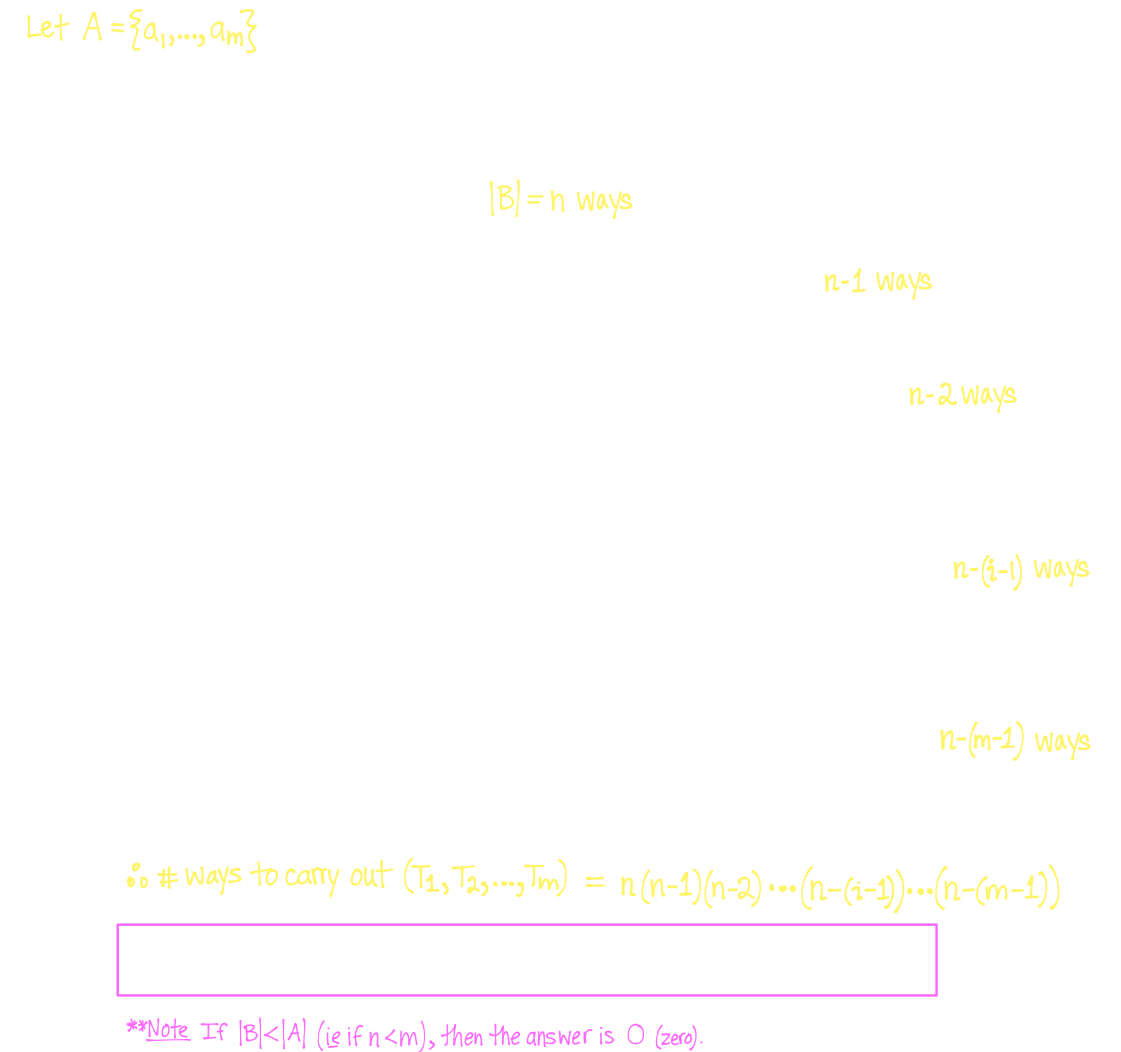 Let A = {a₁,...,aₘ}
|B| = n ways
n-1 ways
n-2 ways
n-(i-1) ways
n-(m-1) ways
∴ # ways to carry out (T₁,T₂,...,Tₘ) = n(n-1)(n-2)···(n-(i-1))···(n-(m-1))
**Note If |B|<|A| (ie if n<m), then the answer is 0 (zero).